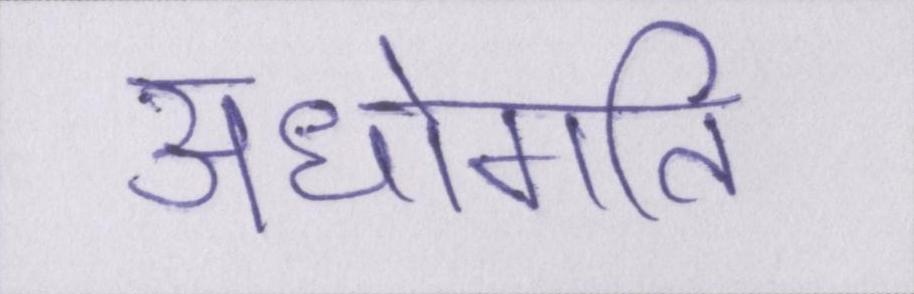 अधोगति